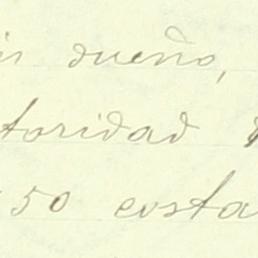 dueño,
toridad
50 costa